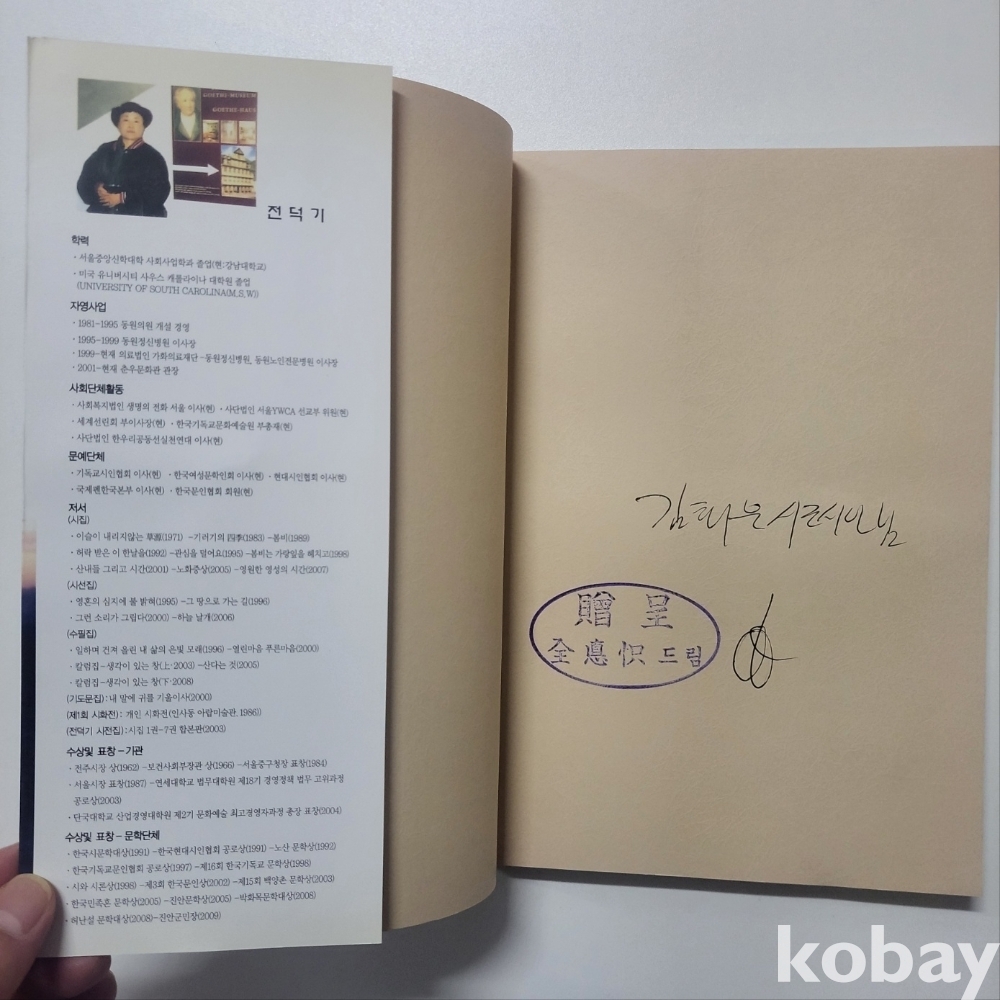 GOETHE-MUSEUM
GOETHE-HAUS
전덕기
학력
· 서울중앙신학대학 사회사업학과 졸업(현:강남대학교)
· 미국 유니버시티 사우스 캐롤라이나 대학원 졸업
(UNIVERSITY OF SOUTH CAROLINA(M,S,W))
자영사업
· 1981-1995 동원의원 개설 경영
· 1995-1999 동원정신병원 이사장
· 1999-현재 의료법인 가화의료재단-동원정신병원, 동원노인전문병원 이사장
· 2001-현재 춘우문화관 관장
사회단체활동
· 사회복지법인 생명의 전화 서울 이사(현) · 사단법인 서울YWCA 선교부 위원(현)
· 세계선린회 부이사장(현) · 한국기독교문화예술원 부총재(현)
· 사단법인 한우리공동선실천연대 이사(현)
문예단체
· 기독교시인협회 이사(현) · 한국여성문학인회 이사(현) · 현대시인협회 이사(현)
· 국제펜한국본부 이사(현) · 한국문인협회 회원(현)
저서
(시집)
· 이슬이 내리지않는 草源(1971) -기러기의 四季(1983) -봄비(1989)
· 허락 받은 이 한날을(1992) -관심을 덜어요(1995) -봄비는 가랑잎을 헤치고(1998)
· 산내들 그리고 시간(2001) -노화증상(2005) -영원한 영성의 시간(2007)
(시선집)
· 영혼의 심지에 불 밝혀(1995) -그 땅으로 가는 길(1996)
· 그런 소리가 그립다(2000) -하늘 날개(2006)
(수필집)
· 일하며 건져 올린 내 삶의 은빛 모래(1996) -열린마음 푸른마음(2000)
· 칼럼집-생각이 있는 창(上·2003) -산다는 것(2005)
· 칼럼집-생각이 있는 창(下·2008)
(기도문집): 내 말에 귀를 기울이사(2000)
(제1회 시화전): 개인 시화전(인사동 아랍미술관, 1986))
(전덕기 시전집): 시집 1권-7권 합본판(2003)
수상및 표창 - 기관
· 전주시장 상(1962) -보건사회부장관 상(1966) -서울중구청장 표창(1984)
· 서울시장 표창(1987) -연세대학교 법무대학원 제18기 경영정책 법무 고위과정
공로상(2003)
· 단국대학교 산업경영대학원 제2기 문화예술 최고경영자과정 총장 표창(2004)
수상및 표창 - 문학단체
· 한국시문학대상(1991) -한국현대시인협회 공로상(1991) -노산 문학상(1992)
· 한국기독교문인협회 공로상(1997) -제16회 한국기독교 문학상(1998)
· 시와 시론상(1998) -제3회 한국문인상(2002) -제15회 백양촌 문학상(2003)
· 한국민족혼 문학상(2005) -진안문학상(2005) -박화목문학대상(2008)
· 허난설 문학대상(2008)-진안군민장(2009)
시조시인님
贈呈
全悳 드림
kobay